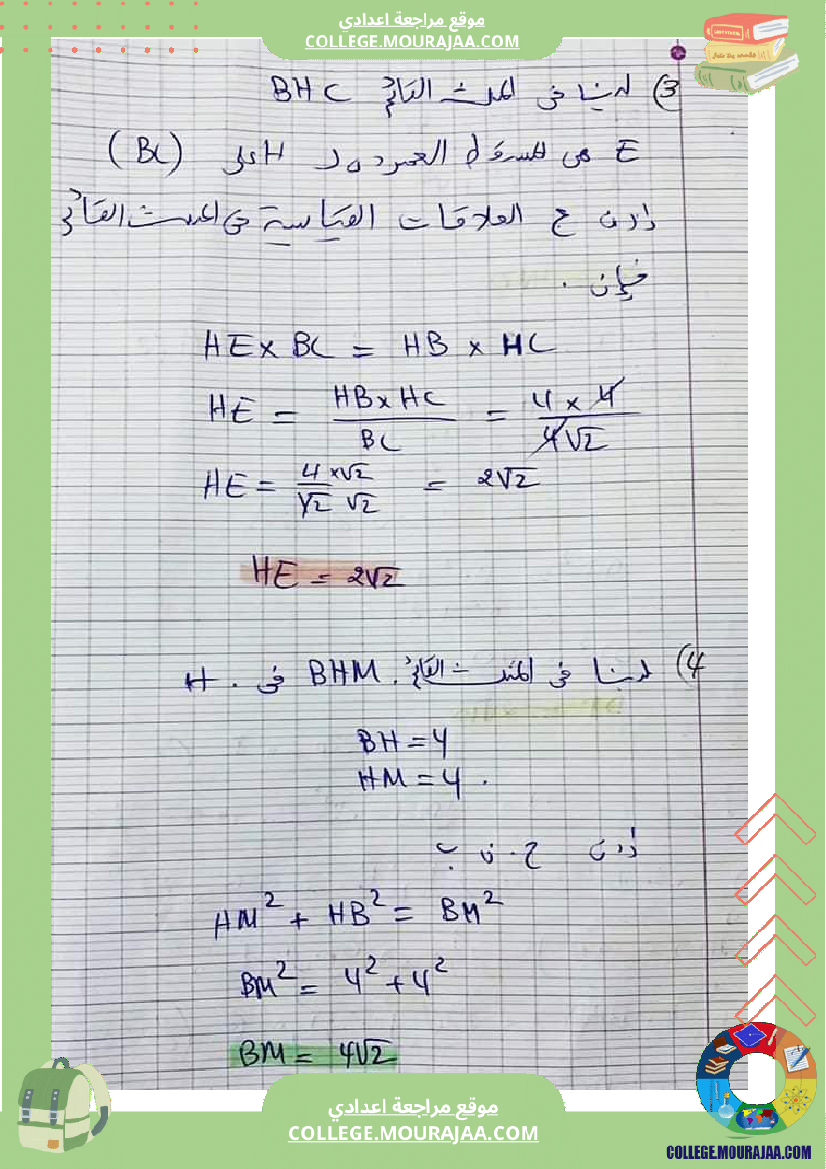 موقع مراجعة اعدادي
COLLEGE.MOURAJAA.COM
3) لدينا في المثلث القائم BHC
E هي المسقط العمودي لـ H على (BC)
إذن ح العلاقات القياسية في المثلث القائم
فإن .
HE × BC = HB × HC
HE = HB × HC / BC = 4 × 4 / 4√2
HE = 4 × √2 / √2 √2 = 2√2
HE = 2√2
4) لدينا في المثلث القائم . BHM في H .
BH = 4
HM = 4 .
إذن ح . ن ب
HM² + HB² = BM²
BM² = 4² + 4²
BM = 4√2
موقع مراجعة اعدادي
COLLEGE.MOURAJAA.COM
COLLEGE.MOURAJAA.COM